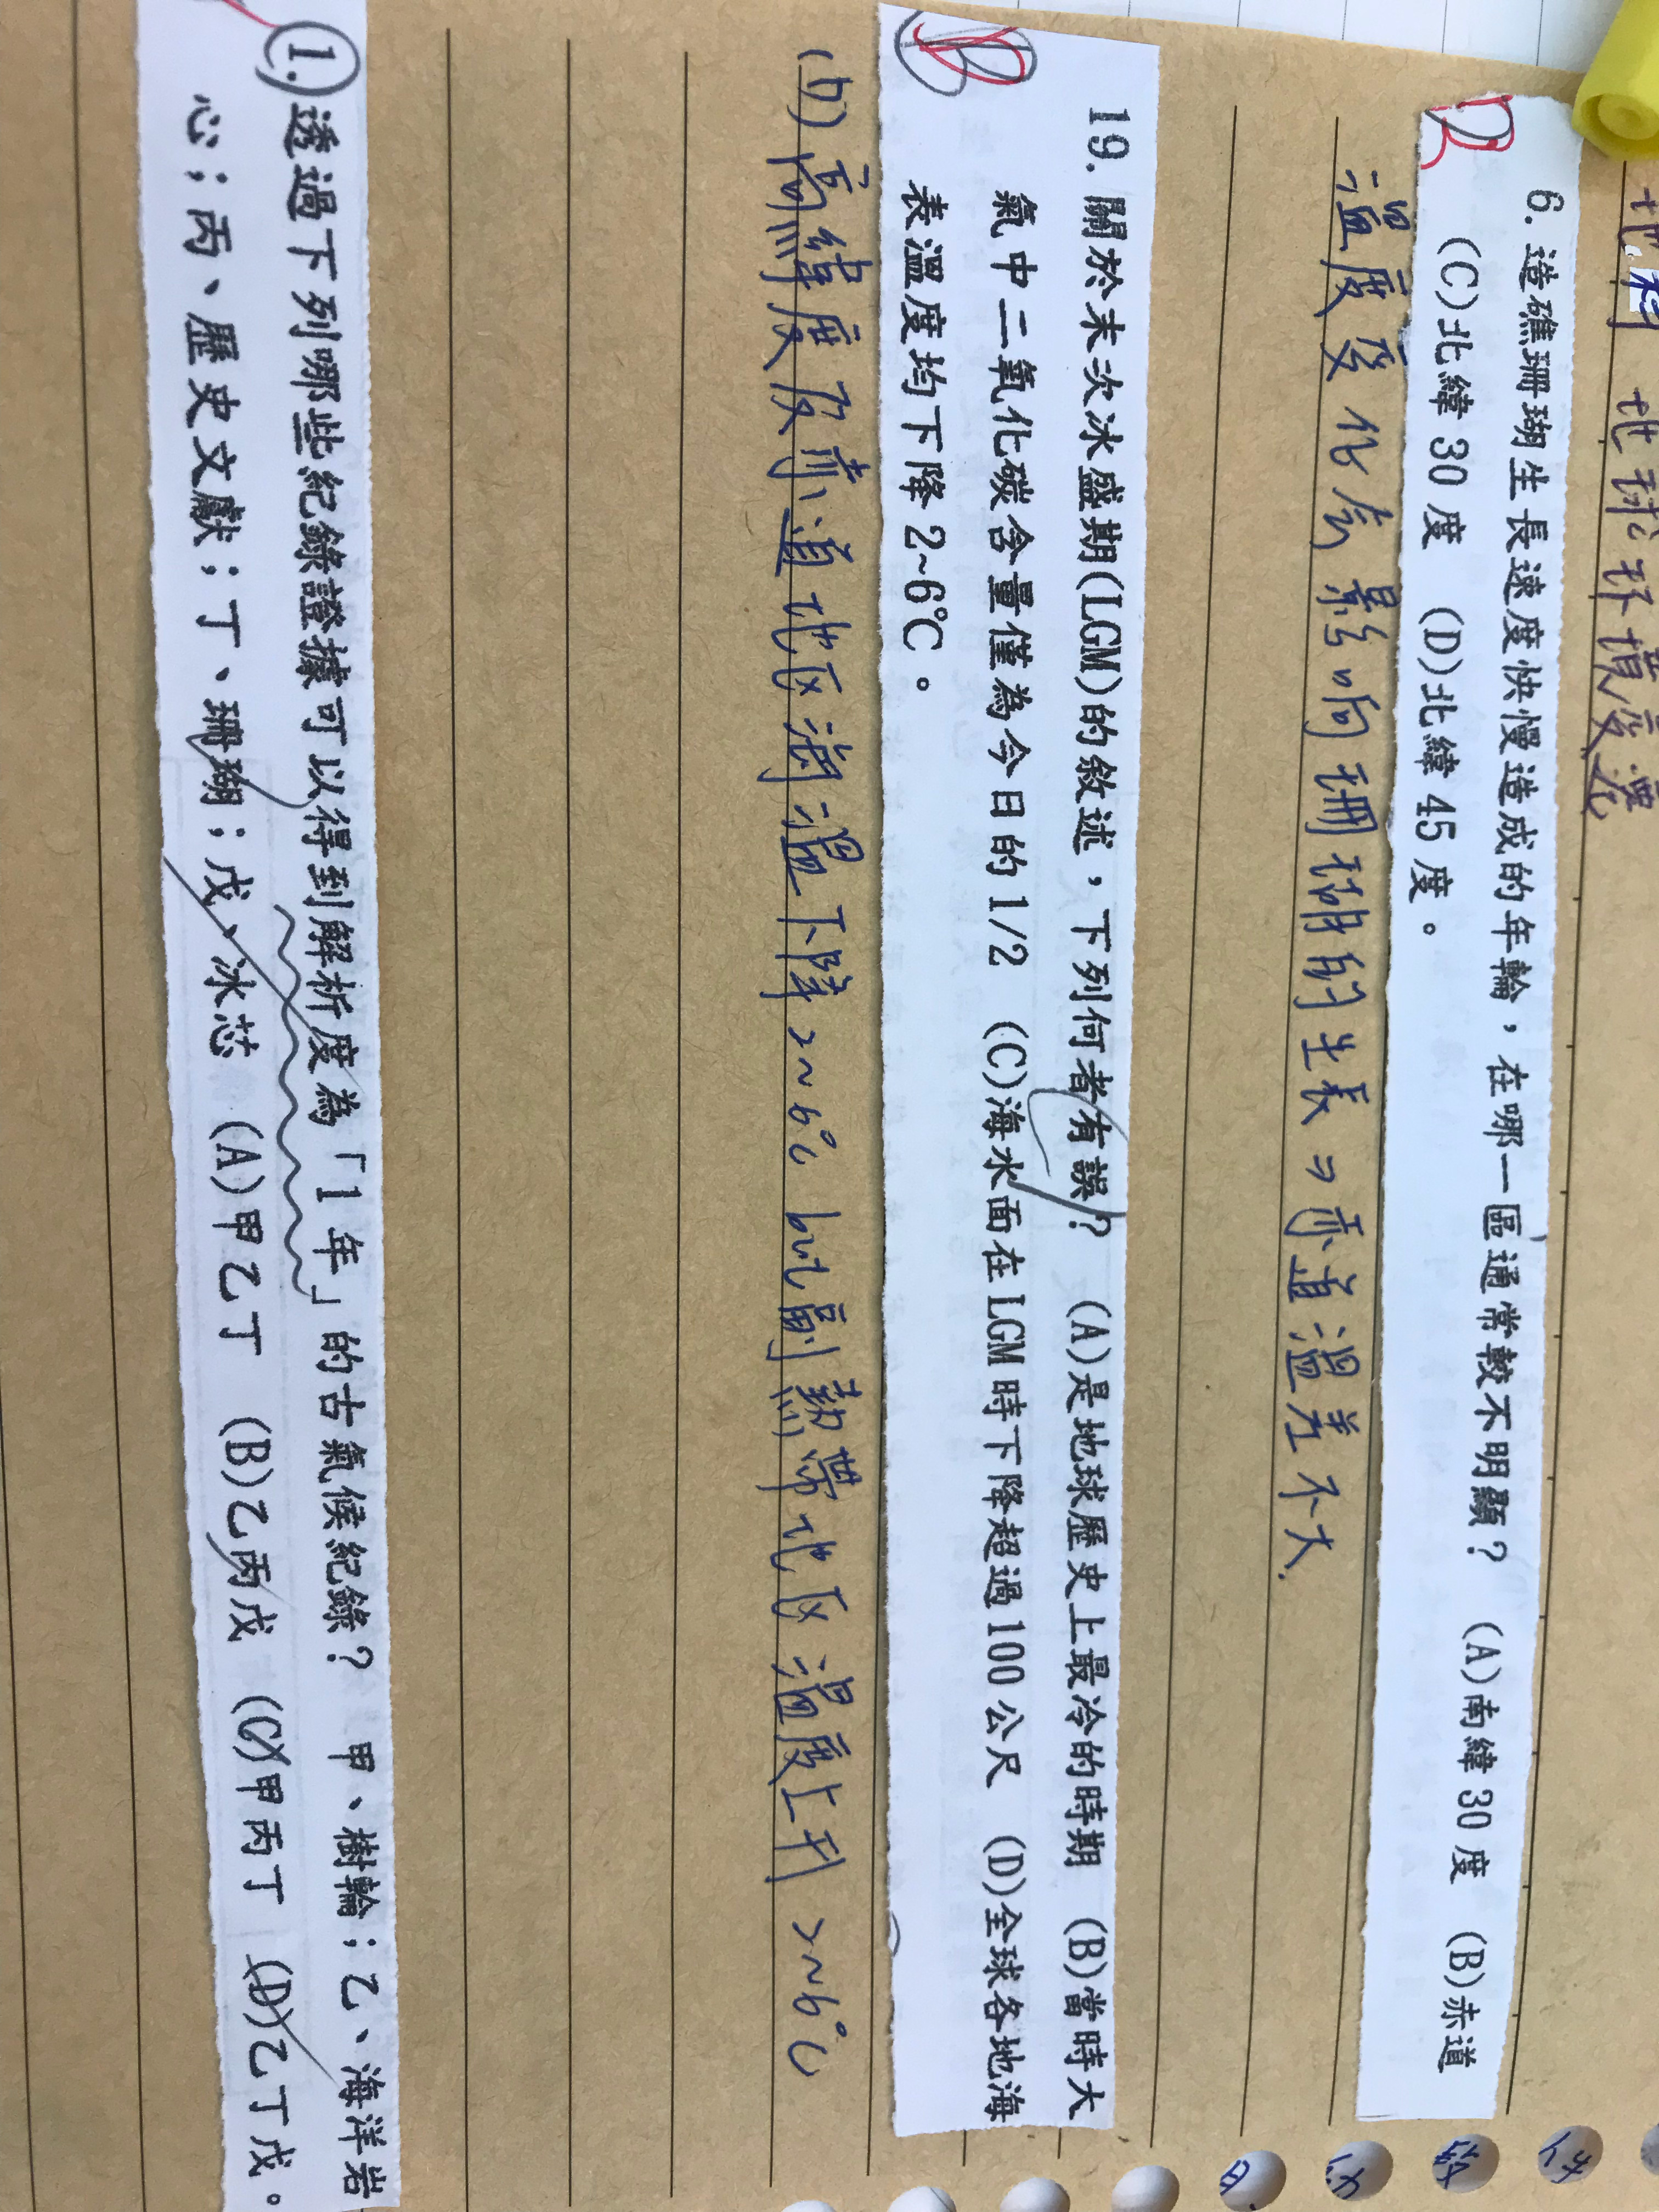 地科 地球環境變遷
6. 造礁珊瑚生長速度快慢造成的年輪,在哪一區通常較不明顯? (A)南緯30度 (B)赤道
(C)北緯30度 (D)北緯45度。
溫度變化會影响珊瑚的生長⇒赤道溫差不大.
19. 關於末次冰盛期(LGM)的敘述,下列何者有誤? (A)是地球歷史上最冷的時期 (B)當時大
氣中二氧化碳含量僅為今日的1/2 (C)海水面在LGM時下降超過100公尺 (D)全球各地海
表溫度均下降2~6℃。
(D)高緯度及赤道地区海溫下降2~6℃ but副熱帶地区溫度上升2~6℃
1. 透過下列哪些紀錄證據可以得到解析度為「1年」的古氣候紀錄? 甲、樹輪;乙、海洋岩
心;丙、歷史文獻;丁、珊瑚;戊、冰芯 (A)甲乙丁 (B)乙丙戊 (C)甲丙丁 (D)乙丁戊。